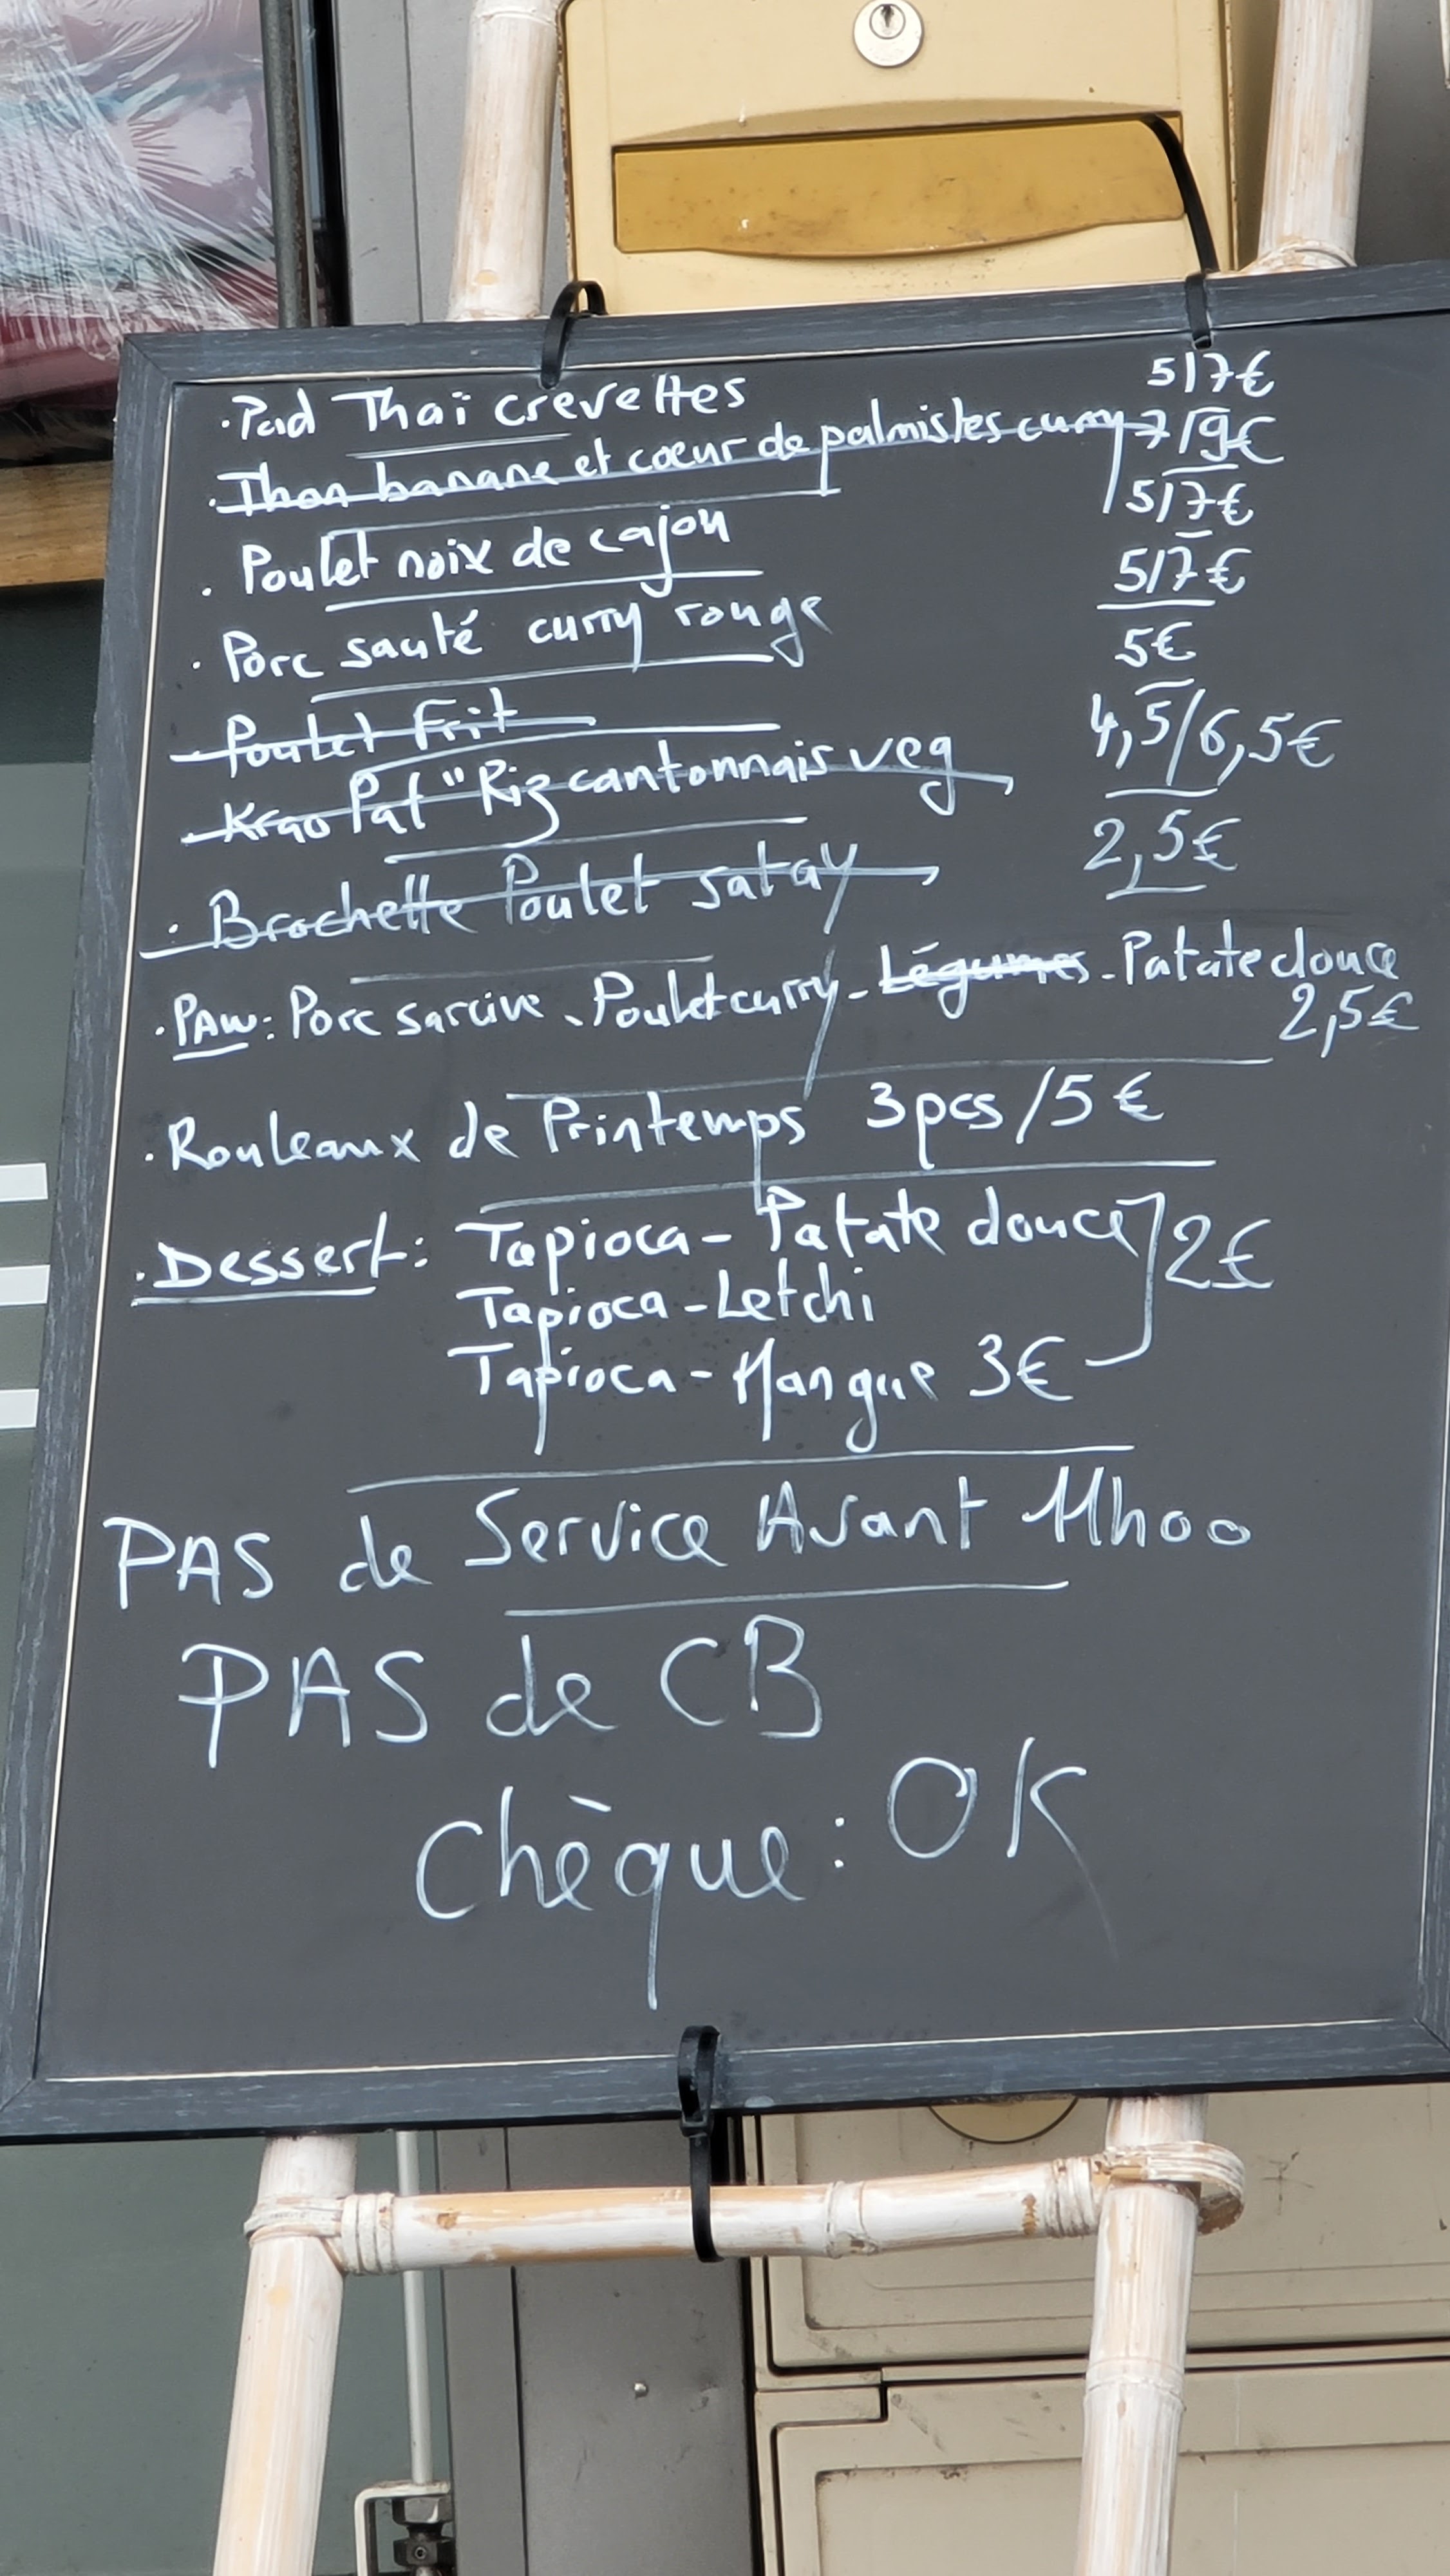 · Pad Thaï crevettes 5/7€
· Thon banane et cœur de palmistes curry 7/9€
· Poulet noix de cajou 5/7€
· Porc sauté curry rouge 5/7€
· Poulet Frit 5€
· Krao Pat "Riz cantonnais veg 4,5/6,5€
· Brochette Poulet satay 2,5€
· PAW: Porc sarcive - Poulet curry - Légumes - Patate douce
2,5€
· Rouleaux de Printemps 3pcs/5€
· Dessert: Tapioca - Patate douce ] 2€
Tapioca - Letchi
Tapioca - Mangue 3€
PAS de Service Avant 11h00
PAS de CB
Chèque: OK